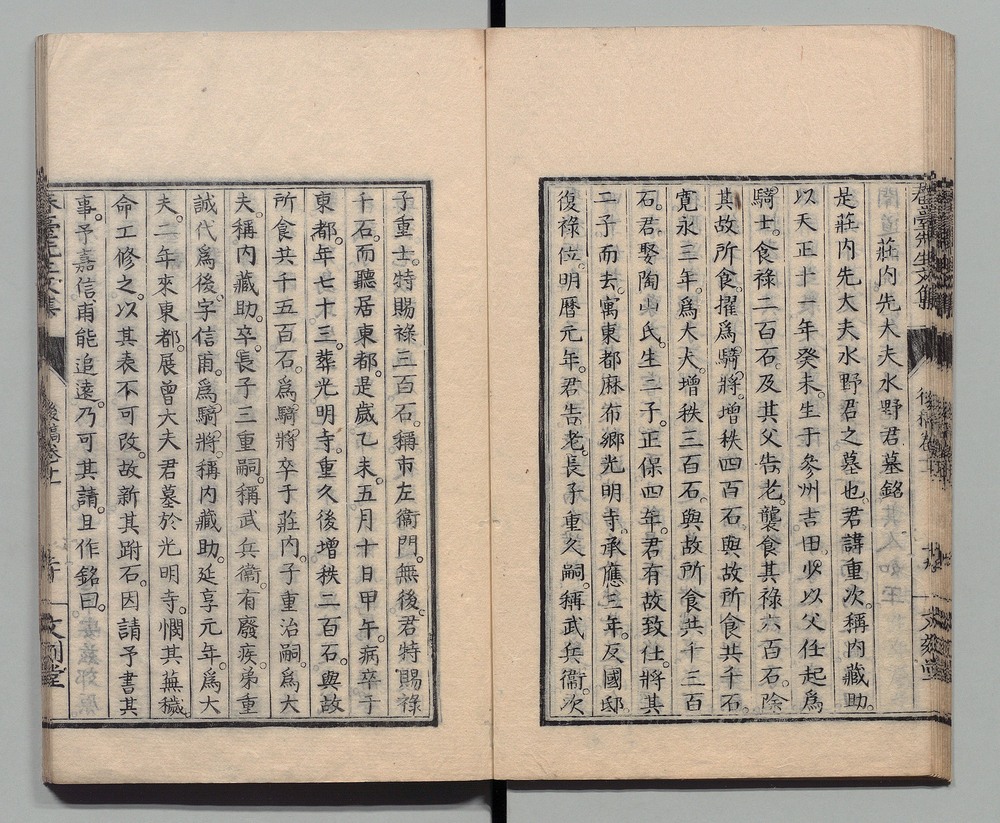 莊内先大夫水野君墓銘
是莊内先大夫水野君之墓也。君諱重次。稱内藏助。
以天正十一年癸未。生于參州吉田。少以父任起爲
騎士。食祿二百石。及其父告老。襲食其祿六百石。除
其故所食。擢爲騎將。增秩四百石。與故所食共千石。
寛永三年。爲大夫。增秩三百石。與故所食共千三百
石。君娶陶山氏。生二子。正保四年。君有故致仕。將其
二子而去。寓東都麻布鄉光明寺。承應三年。反國邸
復祿位。明曆元年。君告老。長子重久嗣。稱武兵衞。次
子重士。特賜祿三百石。稱市左衞門。無後。君特賜祿
千石。而聽居東都。是歲乙未。五月十日甲午。病卒于
東都。年七十三。葬光明寺。重久後增秩二百石。與故
所食共千五百石。爲騎將。卒于莊内。子重治嗣。爲大
夫。稱内藏助。卒。長子三重嗣。稱武兵衞。有廢疾。弟重
誠代爲後。字信甫。爲騎將。稱内藏助。延享元年。爲大
夫。二年來東都。展曾大夫君墓於光明寺。憫其蕪穢。
命工修之。以其表不可改。故新其跗石。因請予書其
事。予嘉信甫能追遠。乃可其請。且作銘曰。
後稿卷十一